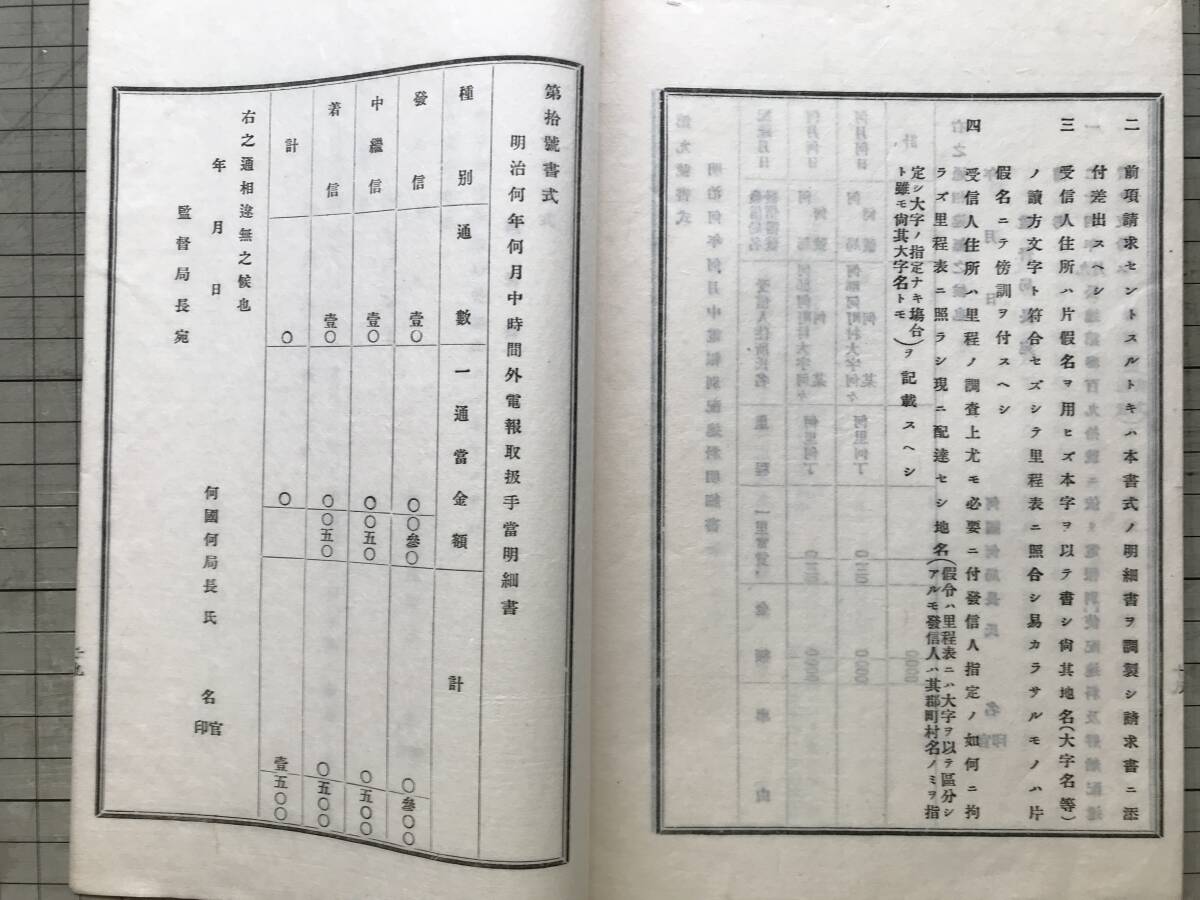 二 前項請求セントスルトキハ本書式ノ明細書ヲ調製シ請求書ニ添
付差出スヘシ
三 受信人住所ハ片假名ヲ用ヒズ本字ヲ以テ書シ尙其地名(大字名等)
ノ讀方文字ト符合セズシテ里程表ニ照合シ易カラサルモノハ片
假名ニテ傍訓ヲ付スヘシ
四 受信人住所ハ里程ノ調查上尤モ必要ニ付發信人指定ノ如何ニ拘
ラズ里程表ニ照ラシ現ニ配達セシ地名(假令ハ里程表ニハ大字ヲ以テ區分シ
アルモ發信人ハ其郡町村名ノミヲ指
定シ大字ノ指定ナキ塲合
ト雖モ尙其大字名トモ)ヲ記載スヘシ
第拾號書式
明治何年何月中時間外電報取扱手當明細書
種別 通數 一通當金額 計
發信 壹〇 〇〇叄〇 〇叄〇〇
中繼信 壹〇 〇〇五〇 〇五〇〇
着信 壹〇 〇〇五〇 〇五〇〇
計 〇 〇 壹五〇〇
右之通相違無之候也
年 月 日
何國何局長氏 名 官印
監督局長宛